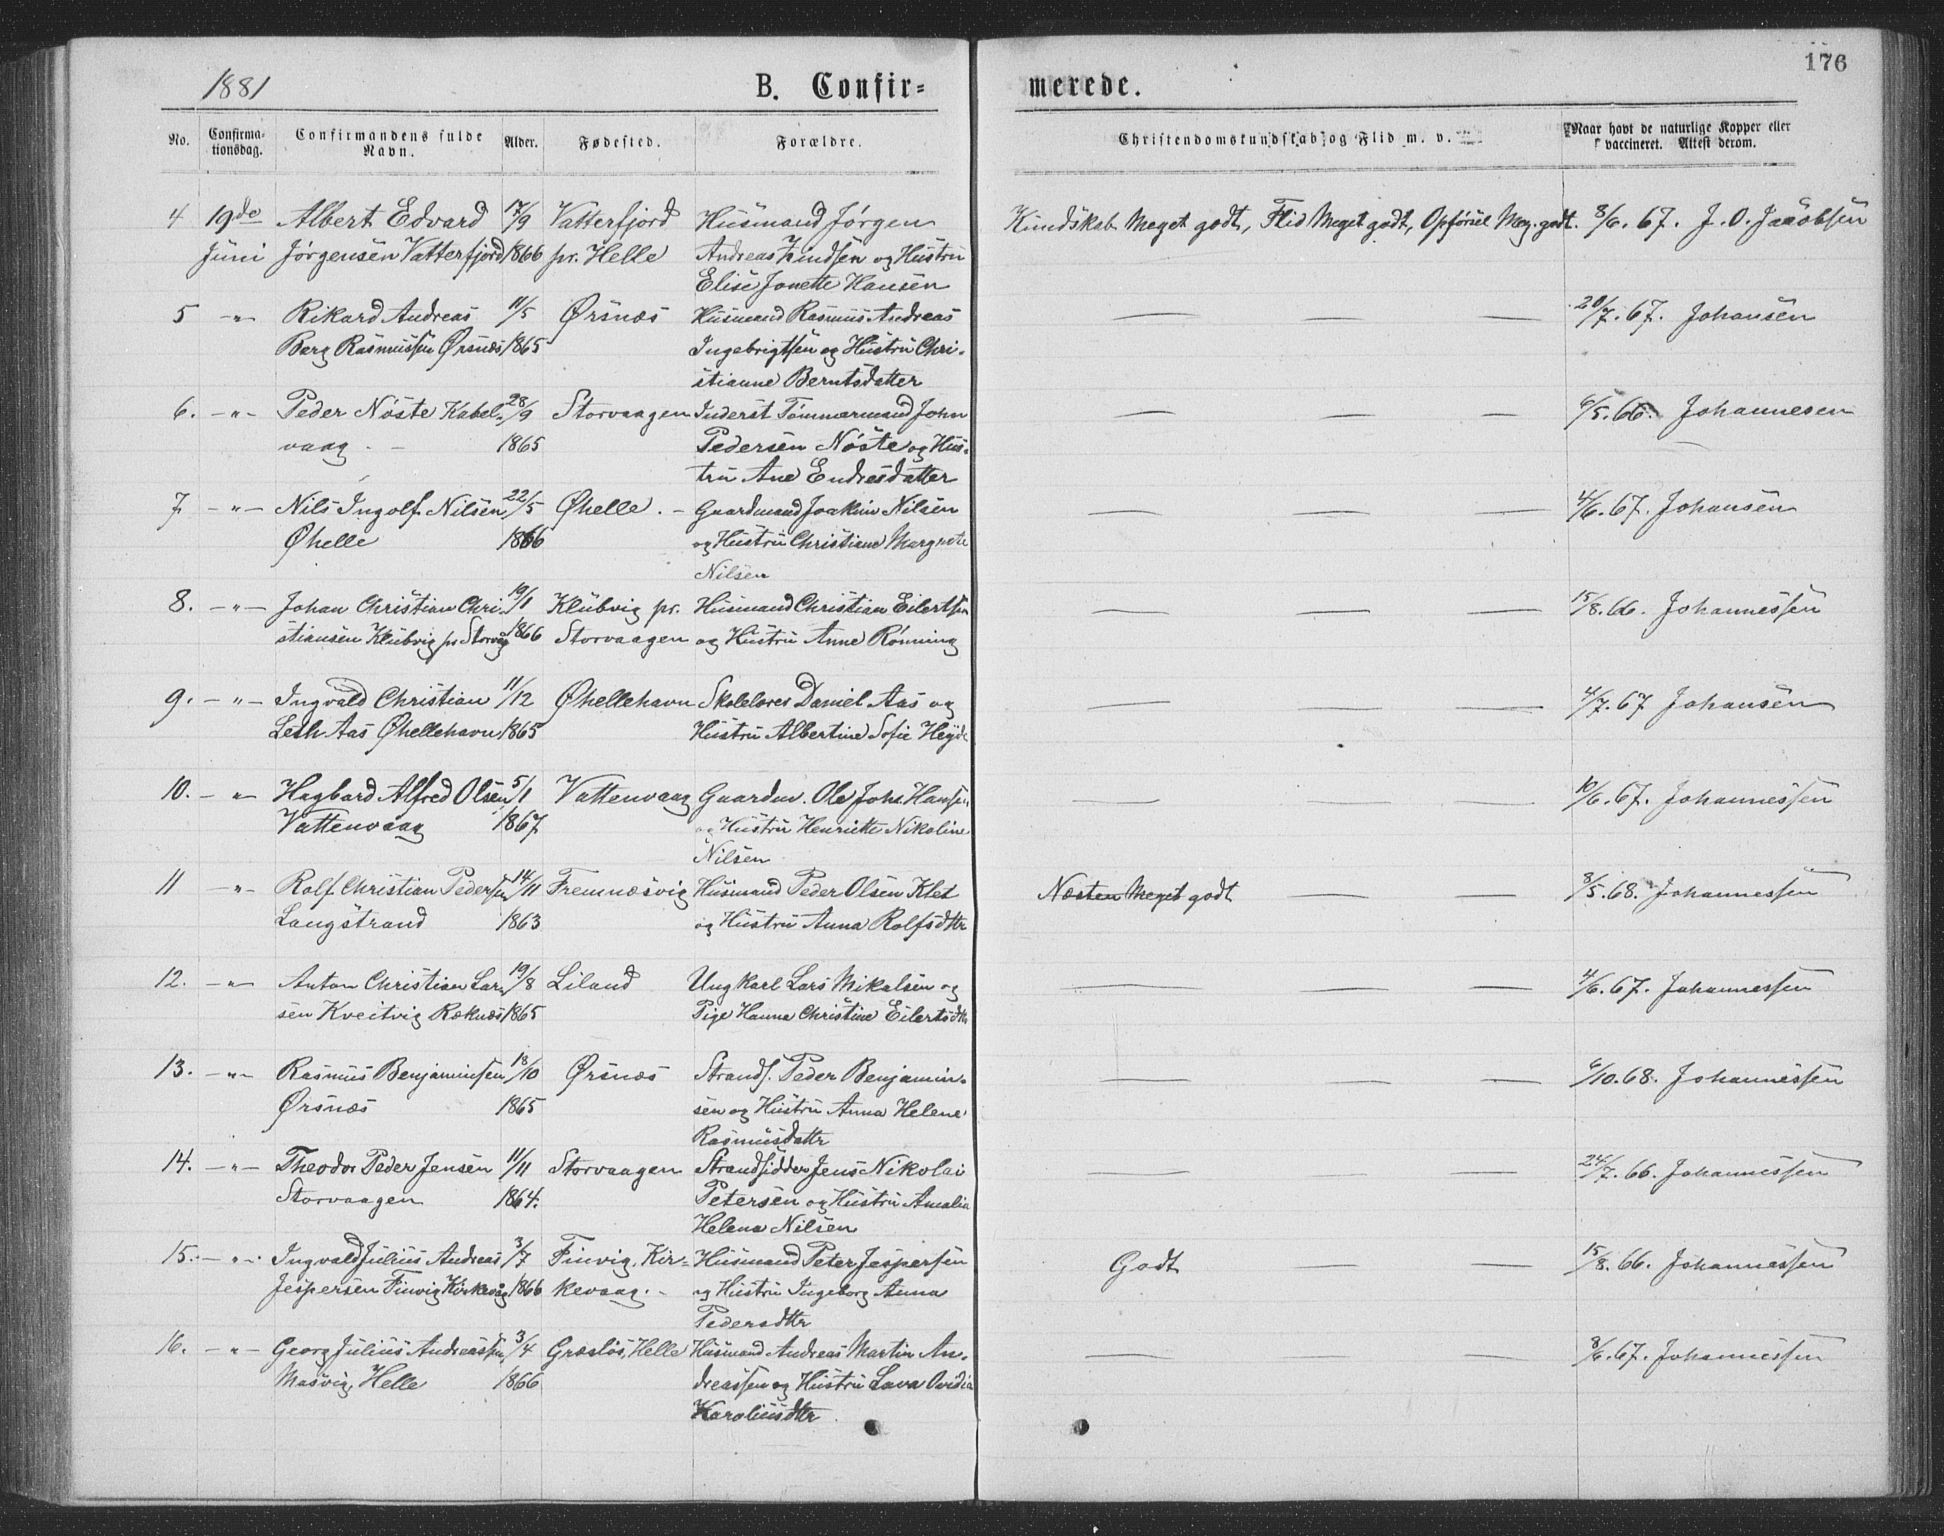 176
1881 B. Confir= merede.
No. Confirma-tionsdag. Confirmandens fulde Navn. Alder. Fødested. Forældre. Christendomskundskab og Flid m. v. Naar havt de naturlige Kopper eller vaccineret. Attest derom.
4 19de Albert Edvard 17/9 Vatterfjord Husmand Jørgen Kundskab Meget godt, Flid Meget godt, Opførsel Meg. godt. 8/6. 67. J. O. Jacobsen
Juni Jørgensen Vatterfjord 1866 pr. Helle Andreas og Hustru
Elise Jonette Hansen
5 -"- Rikard Andreas 11/5 Ørsnæs Husmand Rasmus Andreas — — — 20/7. 67. Johansen
Berg Rasmussen Ørsnæs 1865 Ingebrigtsen og Hustru Chri-
stianne Berntsdatter
6. -"- Peder Nøste Kabel- 28/9 Storvaagen Inderst Tømmermand John — — — 6/5. 66. Johannesen
vaag - 1865 Pedersen Nøste og Hus-
tru Ane Endresdatter
7 -"- Nils Ingolf Nilsen 22/5 Øhelle. - Gaardmand Joakim Nilsen — — — 4/6. 67. Johansen
Øhelle 1866 og Hustru Christiane Margrete
Nilsen
8. -"- Johan Christian Chri- 19/1 Klubvig pr. Husmand Christian Eilertsen — — — 15/8. 66. Johannessen
stiansen Klubvig pr Storvåg 1866 Storvaagen og Hustru Anne Rønning
9. -"- Ingvald Christian 11/12 Øhellehavn Skolelærer Daniel Aas og — — — 4/7. 67 Johansen
Leth Aas Øhellehavn 1865 Hustru Albertine Sofie
10. -"- Hagbard Alfred Olsen 5/1 Vattenvaag Gaardm. Ole Johs. Hansen — — — 10/6. 67. Johannessen
Vattenvaag 1867 og Hustru Henriette Nikoline
Nilsen
11 -"- Rolf Christian Pedersen 14/11 Fremnæsvig Husmand Peder Olsen Klet Næsten Meget godt — — 8/5. 68. Johannessen
Langstrand 1863 og Hustru Anna Rolfsdttr
12. -"- Anton Christian Lar- 19/8 Liland Ungkarl Lars Mikalsen og — — — 4/6. 67. Johannessen
sen Kveitvig Røknæs 1865 Pige Hanna Christine Eilertsdtr
13. -"- Rasmus Benjaminsen 18/10 Ørsnæs Strands. Peder Benjamin- — — — 6/10. 68. Johannessen
Ørsnæs 1865 sen og Hustru Anna Helene
Rasmusdattr
14. -"- Theodor Peder Jensen 11/11 Storvaagen Strandsidder Jens Nikolai — — — 24/7. 66. Johannessen
Storvaagen 1864. Petersen og Hustru Amalia
Helena Nilsen
15. -"- Ingvald Julius Andreas 3/7 Finvig, Kir- Husmand Peter Jespersen Godt — — 15/8. 66. Johannessen
Jespersen Finvig Kirkevåg 1866 kevaag. - og Hustru Ingeborg Anna
Pedersdttr
16. -"- Georg Julius Andreassen 3/4 Græsløs, Helle Husmand Andreas Martin An- — — — 8/6. 67. Johannessen
Masvig, Helle 1866 dreassen og Hustru Lava Ovidia
Karoliusdttr